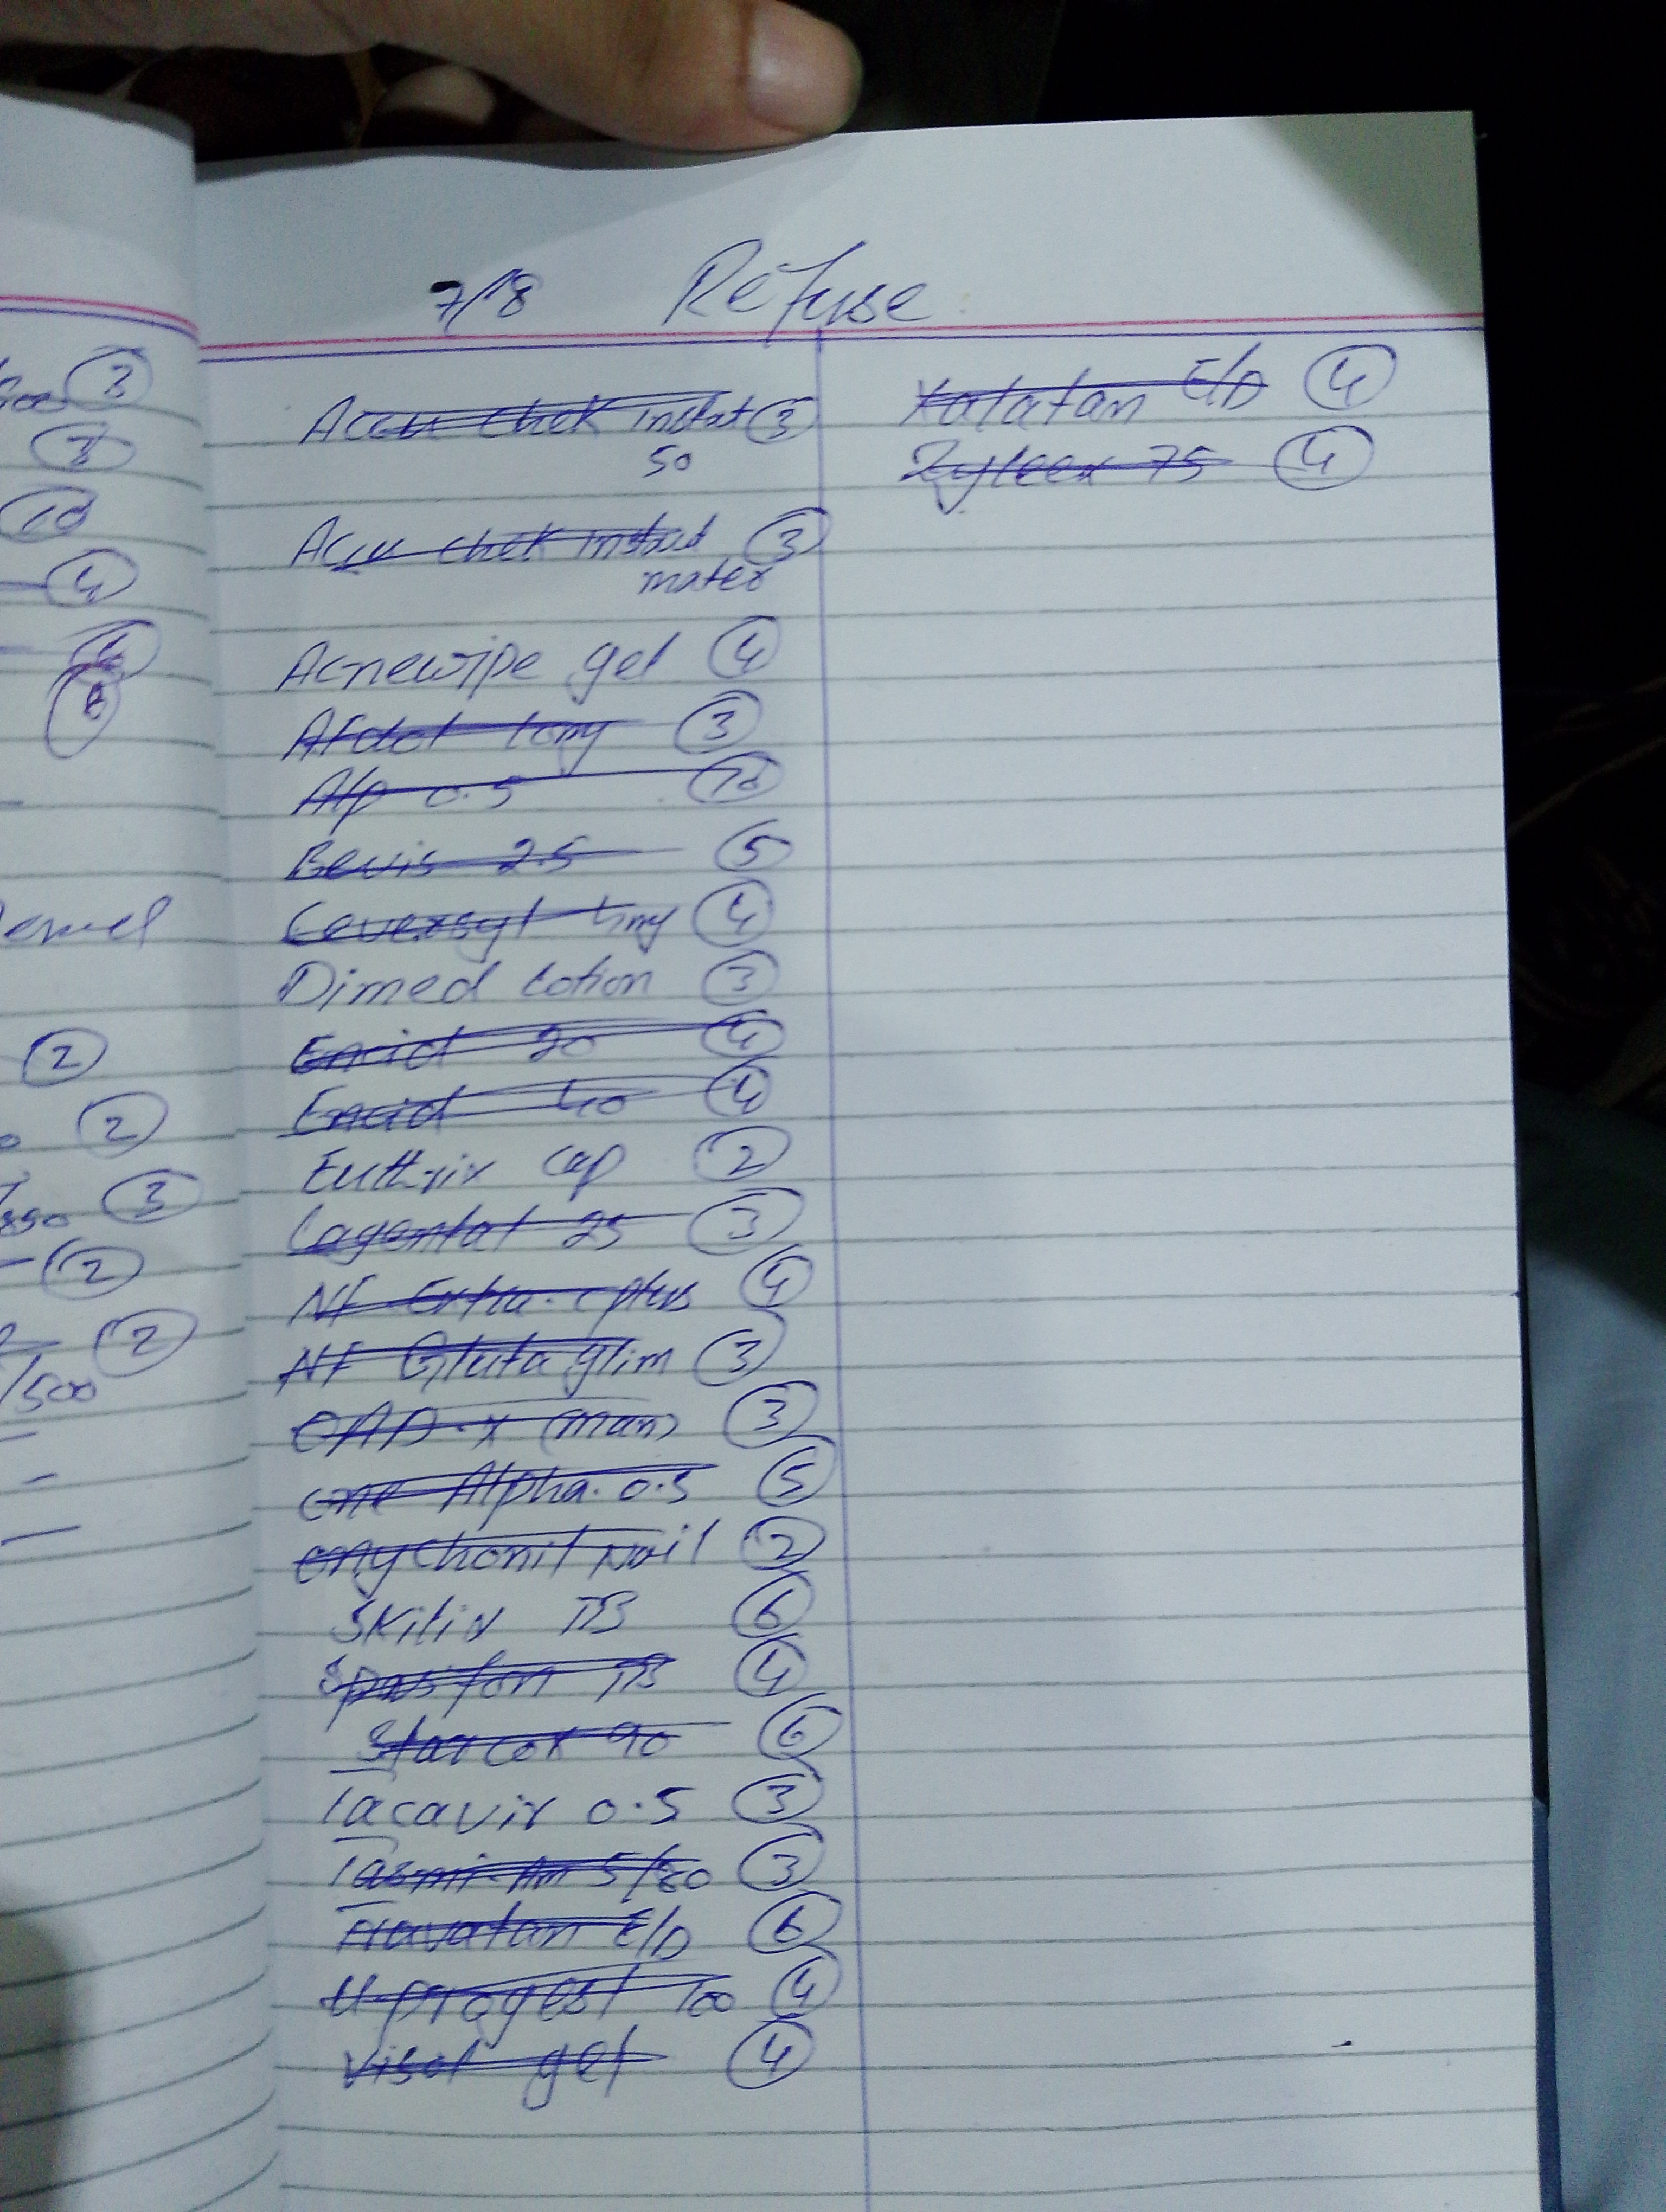 7/8 Refuse
Accu chek instat 3
50
Accu chek instat 3
mater
Acnewipe gel 4
3
Alp 0.5 10
Bevis 2.5 5
Coversyl 4mg 4
Dimed Lotion 3
Encid 20 4
Encid 40 4
cap 2
25 3
NF Extra-c plus 4
NF Gluta glim 3
(man) 3
one Alpha 0.5 5
onychonil Nail 2
TB 6
TB 4
Starcox 90 6
Tacavir 0.5 3
Tasmi-Am 5/80 3
Travatan E/D 6
U-progest 100 4
gel 4
Xalatan E/D 4
75 4
3
3
10
4
emel
2
2
850 3
2
2
/500